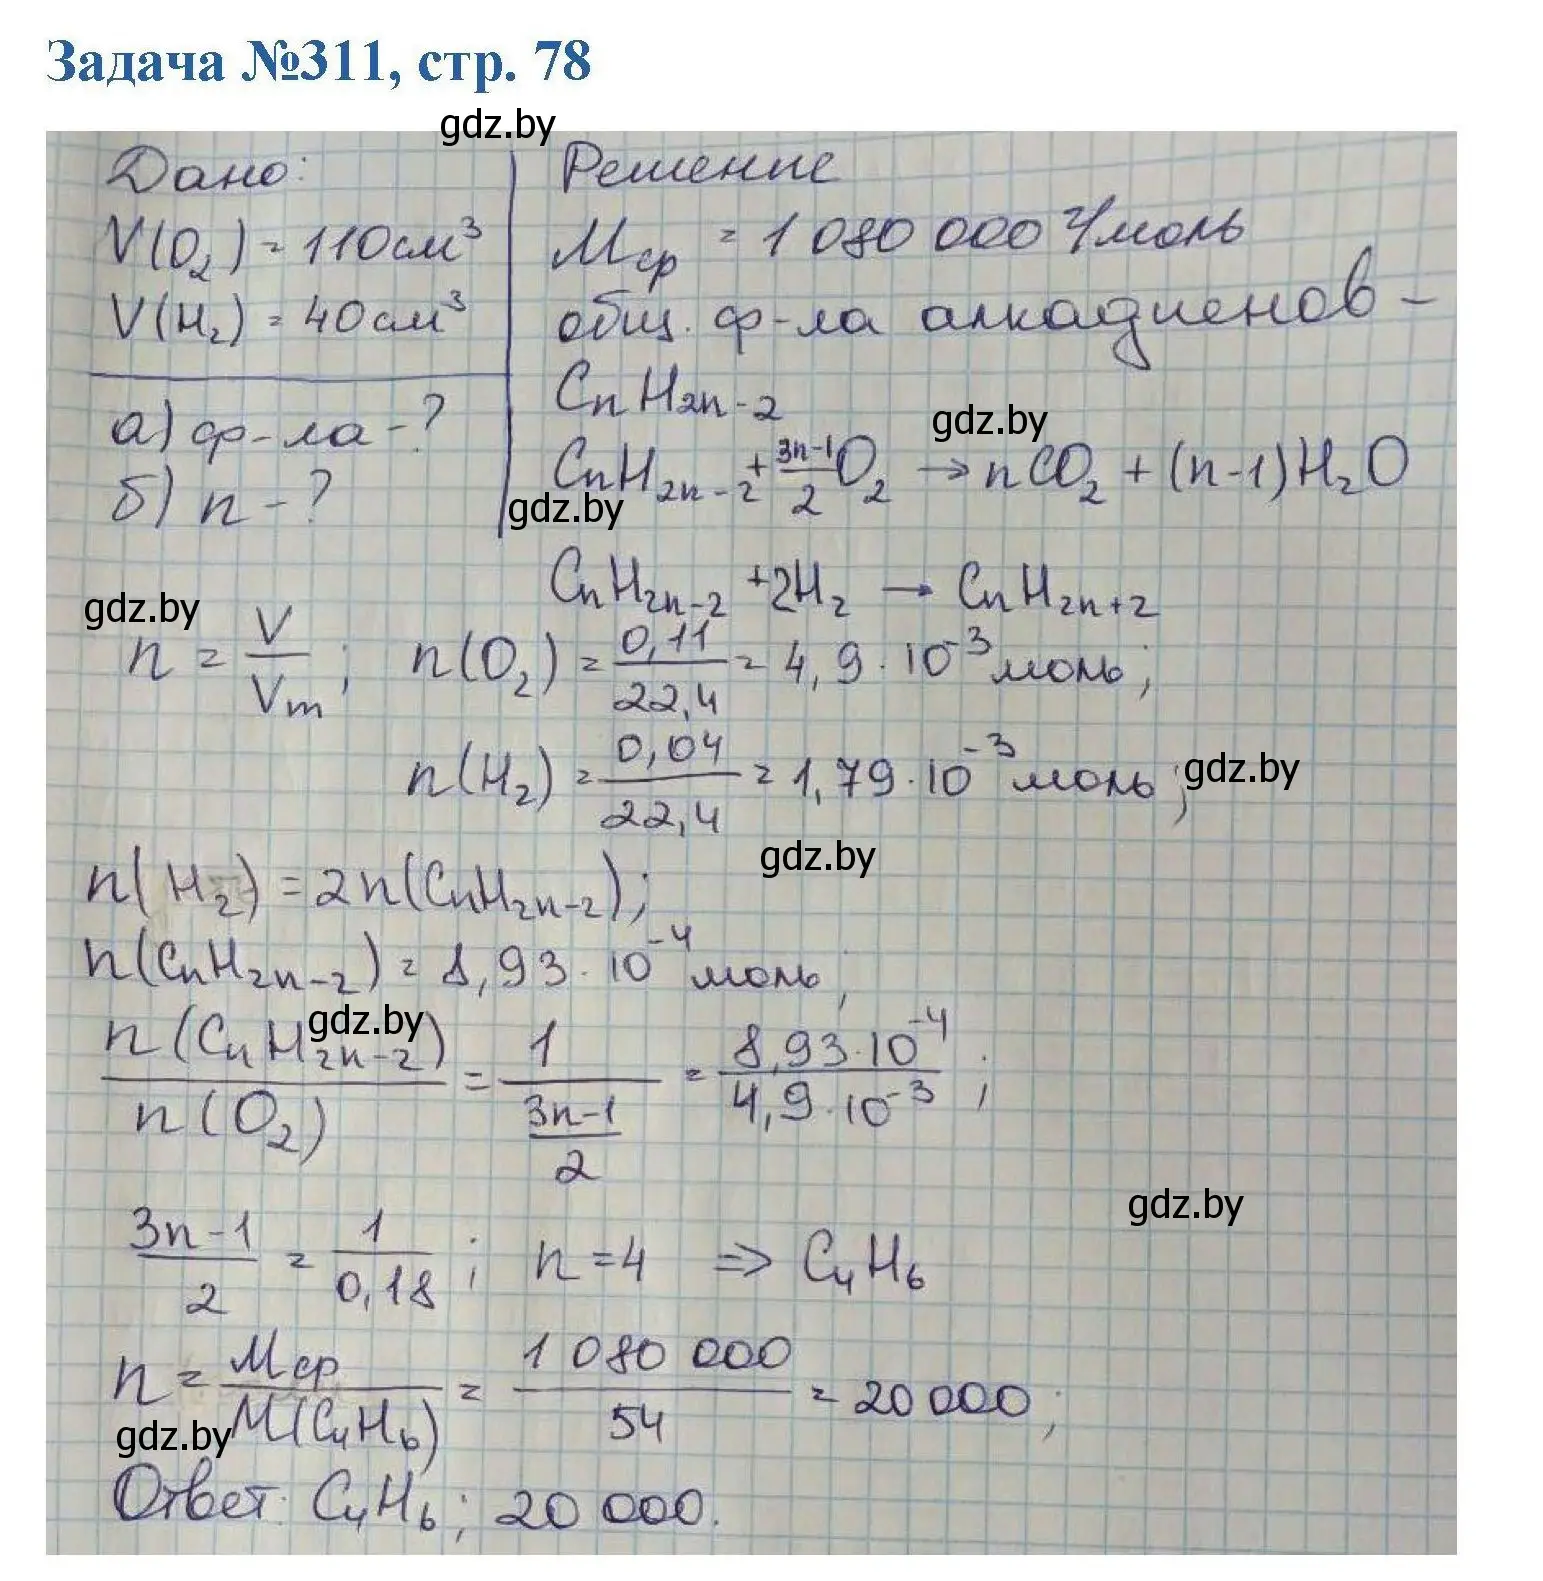 Задача №311, стр. 78
gdz.by
Дано:
V(O₂) = 110 см³
V(H₂) = 40 см³
а) ф-ла - ?
б) n - ?
Решение
Mср = 1 080 000 г/моль
общ. ф-ла алкадиенов –
CnH2n-2
gdz.by
CnH2n-2 + (3n-1)/2 O₂ → nCO₂ + (n-1)H₂O
gdz.by
CnH2n-2 + 2H₂ → CnH2n+2
gdz.by
n = V/Vm; n(O₂) = 0,11/22,4 = 4,9 · 10⁻³ моль;
n(H₂) = 0,04/22,4 = 1,79 · 10⁻³ моль;
gdz.by
gdz.by
n(H₂) = 2n(CnH2n-2);
n(CnH2n-2) = 8,93 · 10⁻⁴ моль;
gdz.by
n(CnH2n-2)/n(O₂) = 1/((3n-1)/2) = 8,93·10⁻⁴/4,9·10⁻³;
gdz.by
(3n-1)/2 = 1/0,18; n = 4 => C₄H₆
n = Mср/M(C₄H₆) = 1 080 000/54 = 20 000;
gdz.by
Ответ: C₄H₆; 20 000.